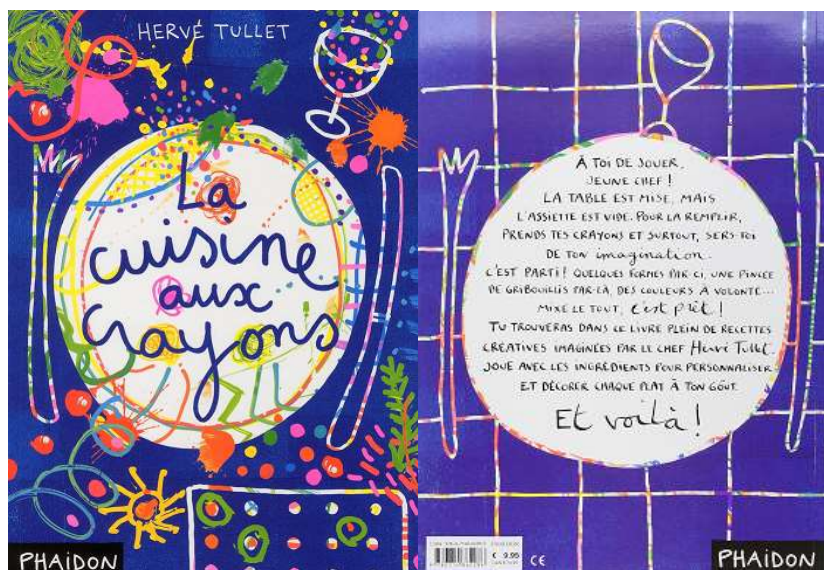 HERVÉ TULLET
La
cuisine
aux
Crayons
PHAIDON
À TOI DE JOUER,
JEUNE CHEF !
LA TABLE EST MISE, MAIS
L'ASSIETTE EST VIDE. POUR LA REMPLIR,
PRENDS TES CRAYONS ET SURTOUT, SERS-TOI
DE TON imagination.
C'EST PARTI ! QUELQUES FORMES PAR-CI, UNE PINCÉE
DE GRIBOUILLIS PAR-LÀ, DES COULEURS À VOLONTÉ...
MIXE LE TOUT, c'est prêt !
TU TROUVERAS DANS CE LIVRE PLEIN DE RECETTES
CRÉATIVES IMAGINÉES PAR LE CHEF Hervé Tullet.
JOUE AVEC LES INGRÉDIENTS POUR PERSONNALISER
ET DÉCORER CHAQUE PLAT À TON GOÛT.
Et voilà !
€ 9.95
CE
PHAIDON